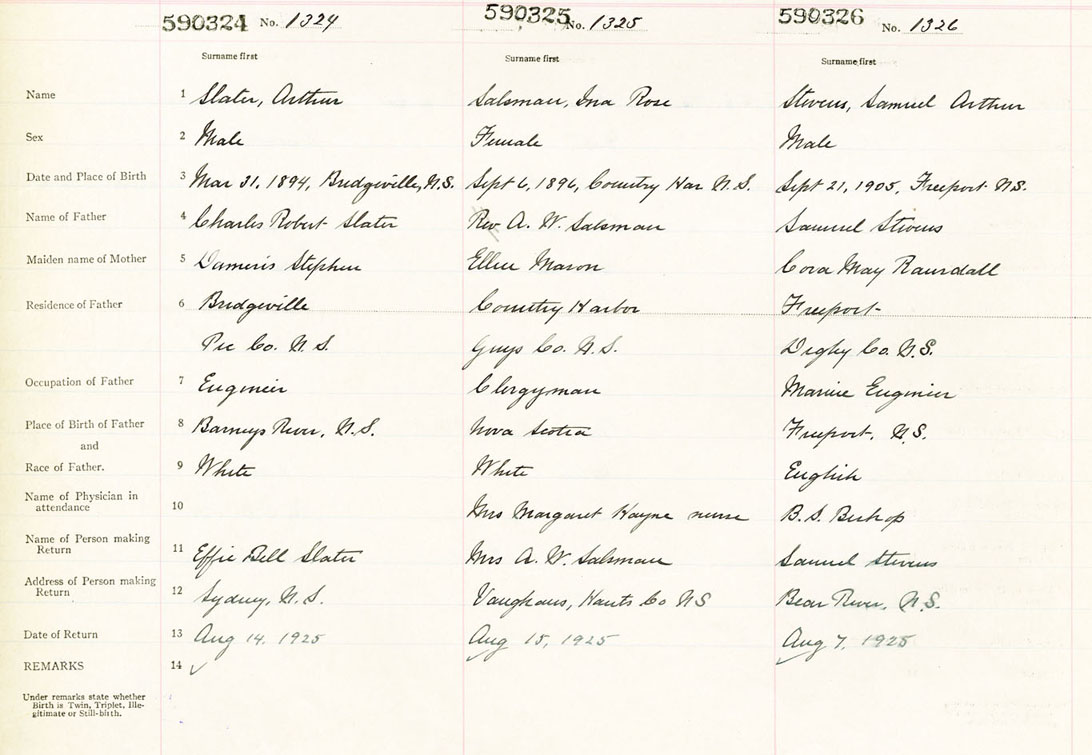 590324 No. 1324 590325 No. 1325 590326 No. 1326
Surname first Surname first Surname first
Name 1 Slater, Arthur Salsman, Ina Rose Stevens, Samuel Arthur
Sex 2 Male Female Male
Date and Place of Birth 3 Mar 31, 1894, Bridgeville, N.S. Sept 6, 1896, Country Har N.S. Sept 21, 1905, Freeport N.S.
Name of Father 4 Charles Robert Slater Rev A. W. Salsman Samuel Stevens
Maiden name of Mother 5 Dameris Stephen Ellen Mason Cora May Raunsdall
Residence of Father 6 Bridgeville Country Harbor Freeport
Pic Co. N.S. Guys Co. N.S. Digby Co. N.S.
Occupation of Father 7 Engineer Clergyman Marine Engineer
Place of Birth of Father 8 Barneys River, N.S. Nova Scotia Freeport, N.S.
and
Race of Father. 9 White White English
Name of Physician in
attendance 10 Mrs Margaret Hayne nurse B.S. Bishop
Name of Person making
Return 11 Effie Bell Slater Mrs A. W. Salsman Samuel Stevens
Address of Person making
Return 12 Sydney, N.S. Vaughans, Hants Co NS Bear River, N.S.
Date of Return 13 Aug 14, 1925 Aug 15, 1925 Aug 7, 1925
REMARKS 14
Under remarks state whether
Birth is Twin, Triplet, Ille-
gitimate or Still-birth.